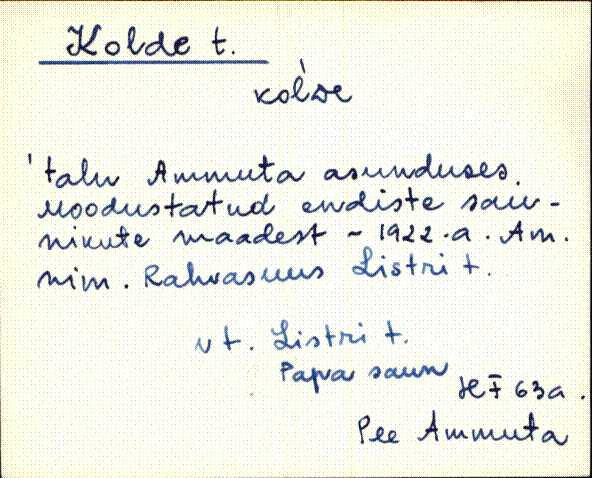 Kolde t.
kol̀de
'talu Ammuta asunduses.
Moodustatud endiste sau-
nikute maadest ~ 1922.a. Am.
nim. Rahvasuus Listri t.
vt. Listri t.
Papa saun
63a.
Pee Ammuta